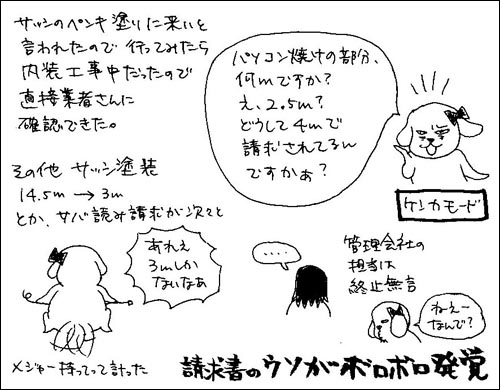 サッシのペンキ塗りに来いと
言われたので 行ってみたら
内装工事中だったので
直接業者さんに
確認できた。
パソコン焼けの部分、
何mですか?
え、2.5m?
どうして4mで
請求されてるん
ですかぁ?
ケンカモード
その他 サッシ塗装
14.5m → 3m
とか、サバ読み請求が次々と
あれぇ
3mしか
ないなあ
....
管理会社の
担当は
終止無言
ねえー
なんで?
メジャー持ってって計った
請求書のウソがボロボロ発覚